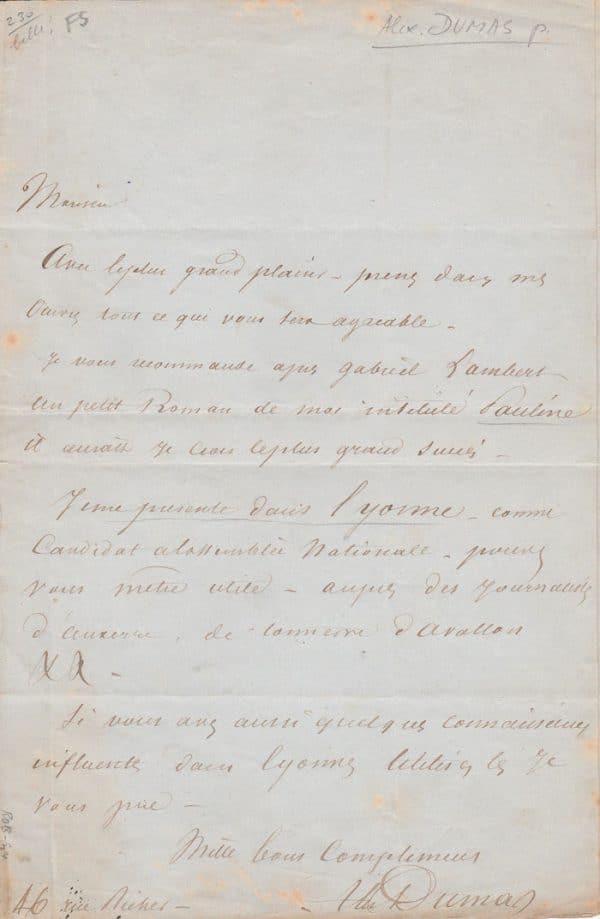 230
F5
Alex. DUMAS p.
Monsieur
Avec le plus grand plaisir – prenez dans mes
Œuvres tous ce qui vous sera agréable –
Je vous recommande apres Gabriel Lambert
un petit Roman de moi intitulé Pauline
il aurait je crois le plus grand succés –
Je me presente dans l'yonne – comme
Candidat a l'assemblée Nationale – pouvez
vous m'être utile – aupres des journaux
d'Auxerre, de tonnerre d'Avallon
XX –
Si vous avez aussi quelques connaissances
influentes dans l'yonne utilisez les je
vous prie –
Mille bons Complimens
Alex Dumas
46 rue Richer –